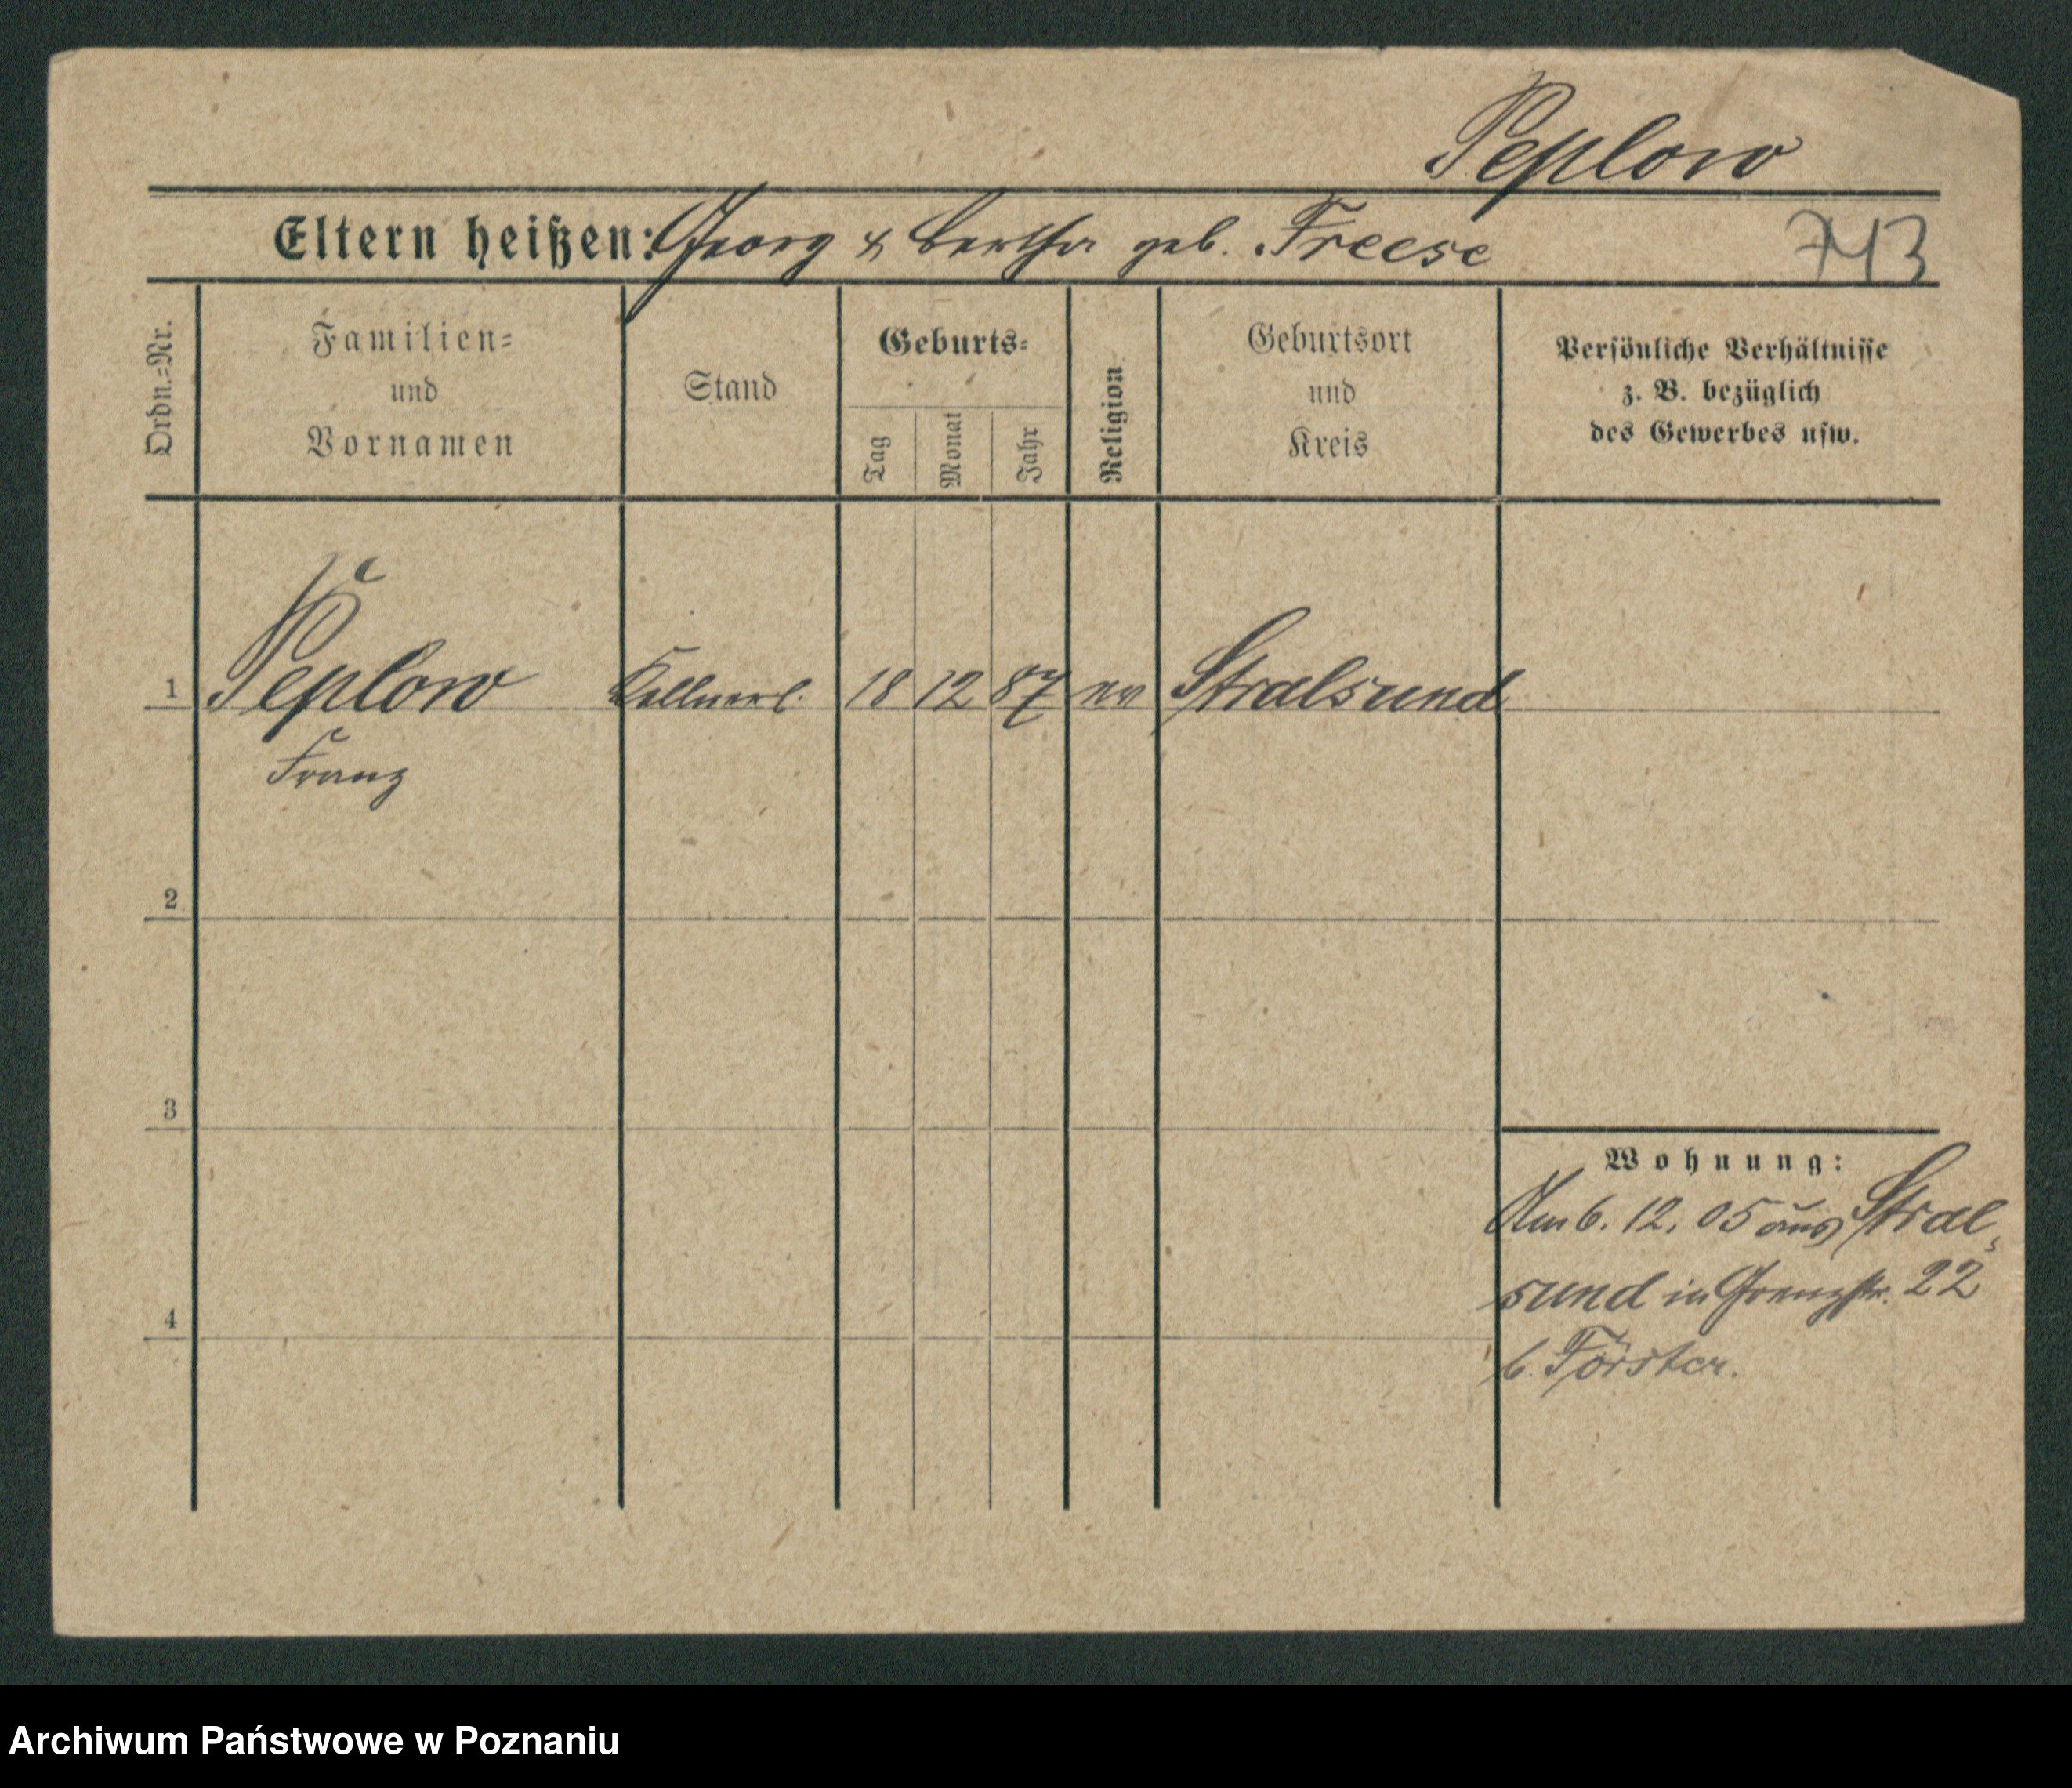 Peplow
Eltern heißen: Georg & Bertha geb. Freese
743
Ordn.=Nr.
Familien=
und
Vornamen
Stand
Geburts=
Tag
Monat
Jahr
Religion
Geburtsort
und
Kreis
Persönliche Verhältnisse
z. B. bezüglich
des Gewerbes usw.
1 Peplow Kellnerl. 18 12 87 ev Stralsund
Franz
2
3
Wohnung:
Am 6. 12. 05 aus Stral-
sund in Grenzstr. 22
4
b. Förster.
Archiwum Państwowe w Poznaniu